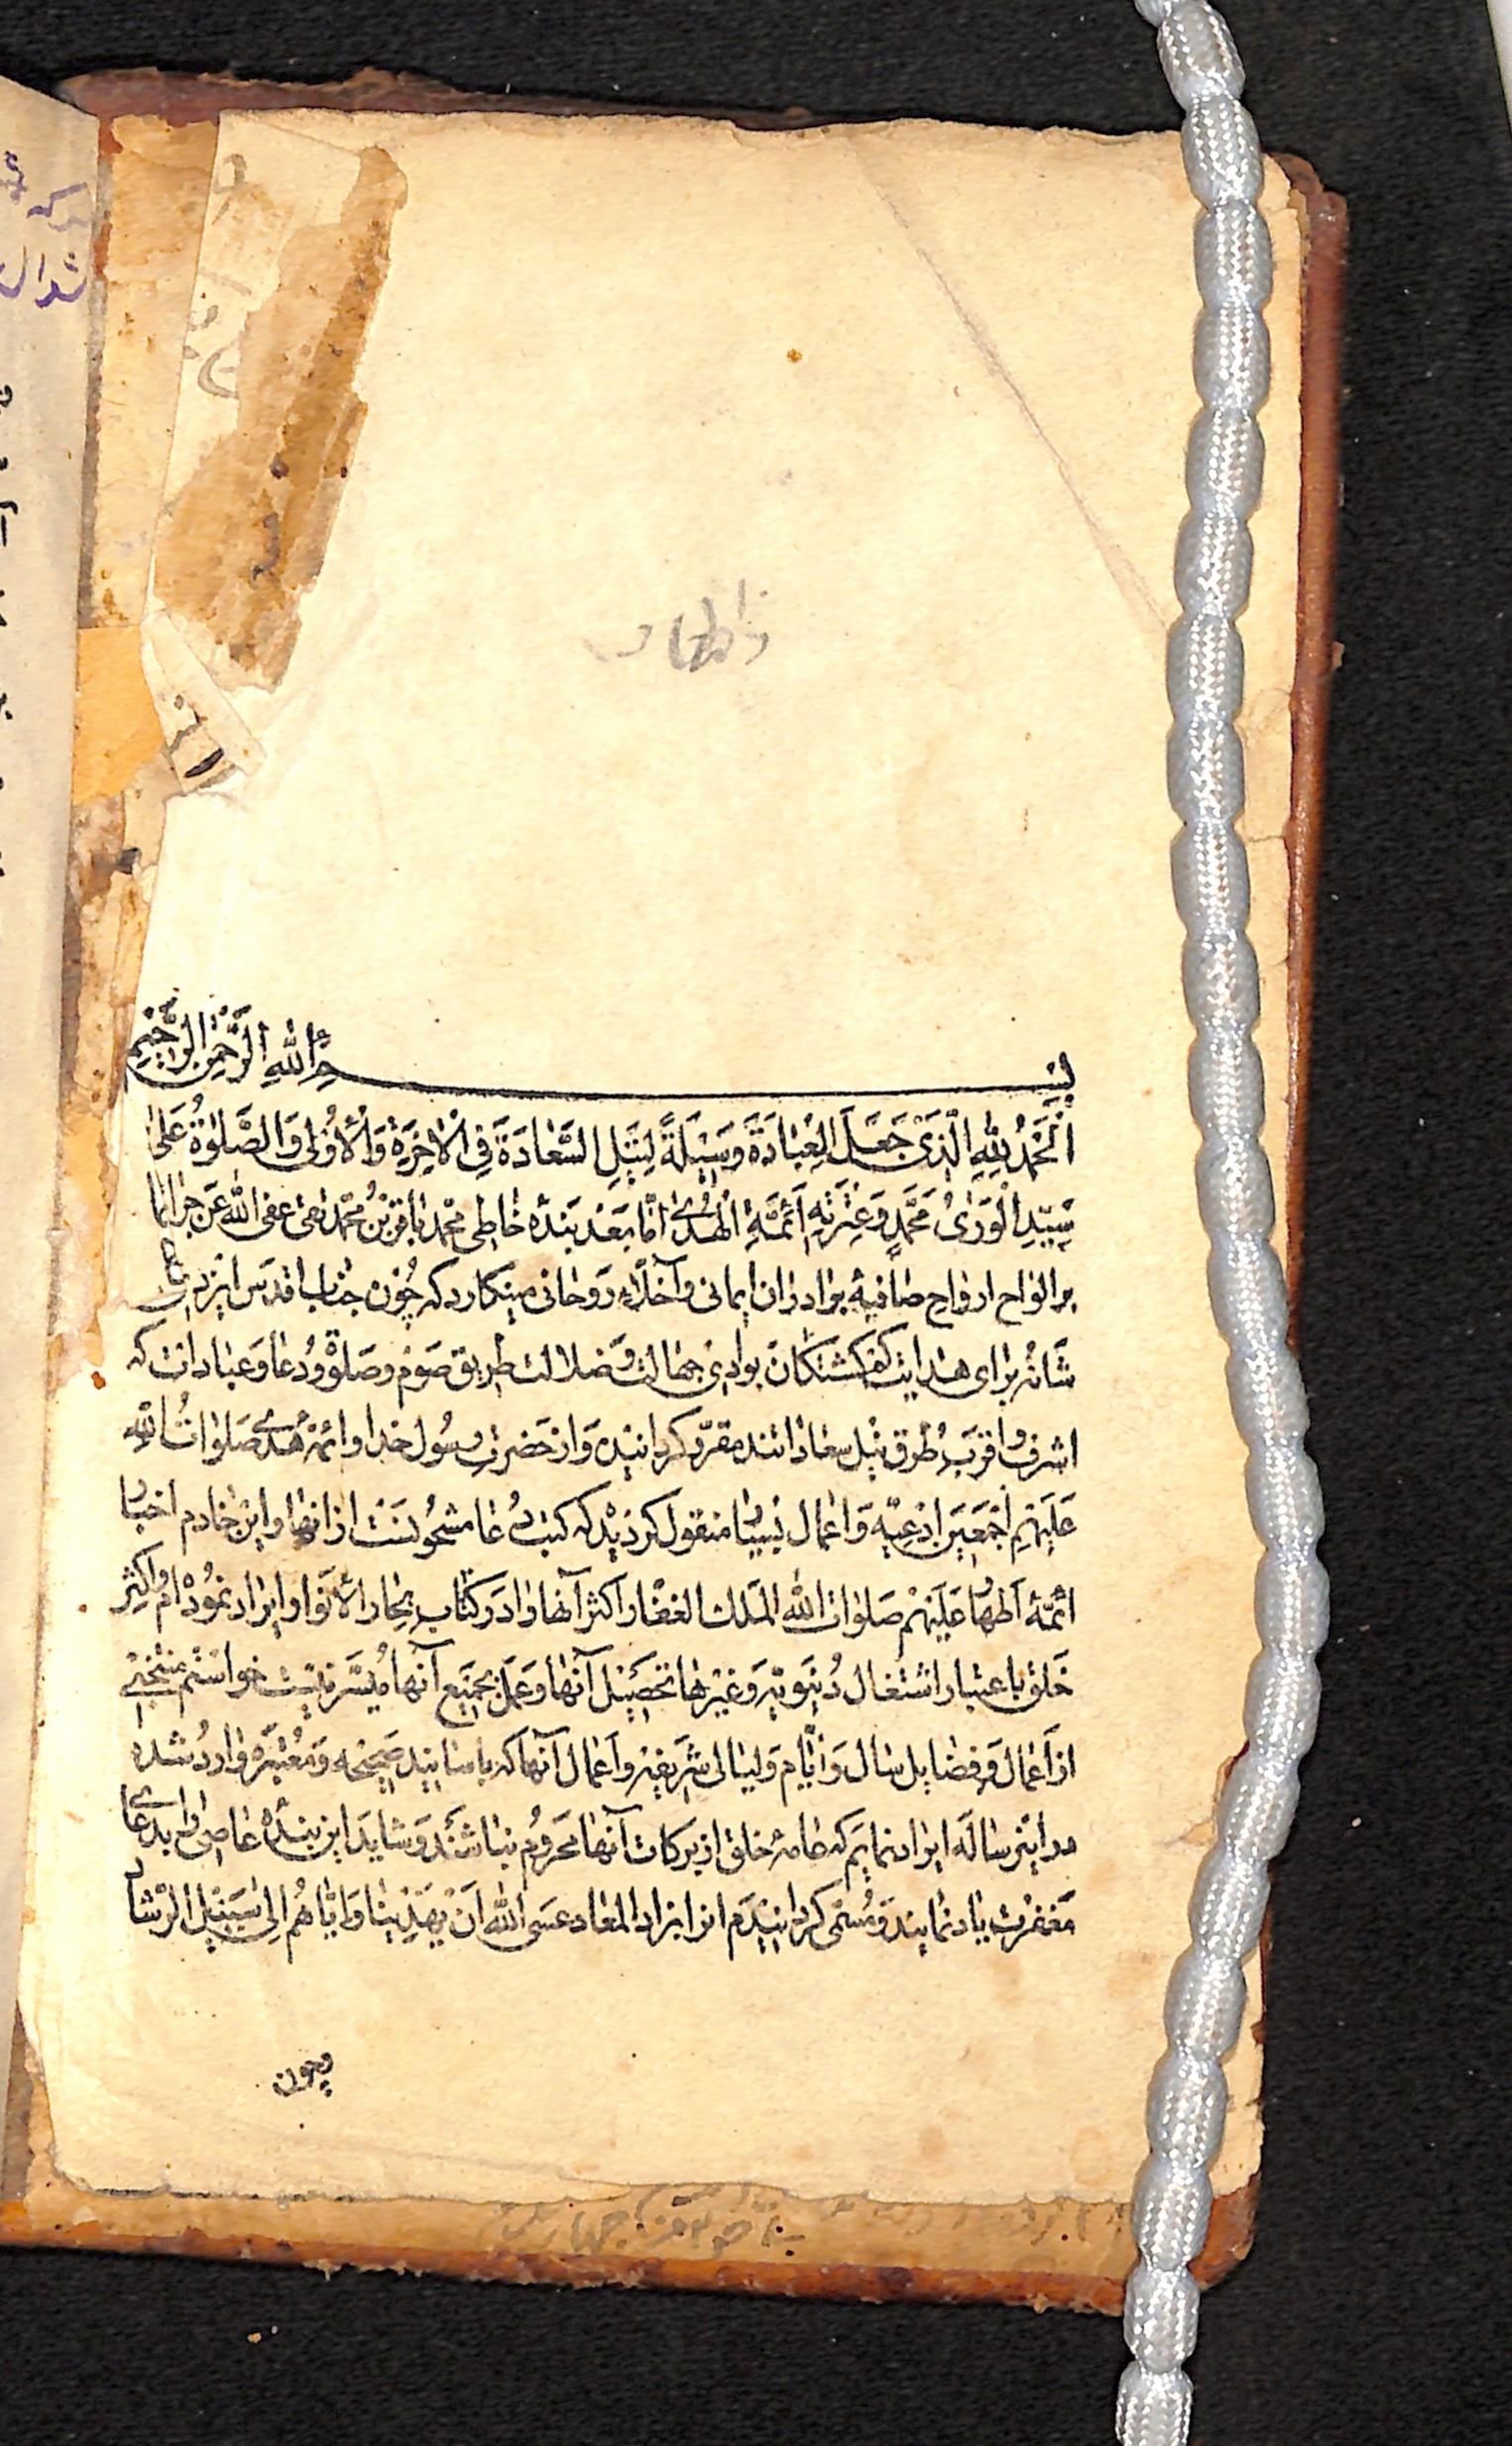 زاد المعاد
بِسْمِ اللهِ الرَّحْمٰنِ الرَّحِيمِ
اَلْحَمْدُ لِلّٰهِ الَّذِیْ جَعَلَ الْعِبَادَةَ وَسِیْلَةً لِنَیْلِ السَّعَادَةَ فِی الْاٰخِرَةِ وَالْاُوْلٰی وَالصَّلٰوةُ عَلٰی
سَیِّدِ الْوَرٰیْ مُحَمَّدٍ وَعِتْرَتِهِ اَئِمَّةِ الْهُدٰیْ امّا بَعْد بَنده خاطی محمّد باقر بْنُ محمّد تقی عفی الله عَن جرائمهما
بر الواح ارواح صافیهٔ برادران ایمانی و اخلّاء روحانی مینگارد که چُون جناب اقدس ایزدی تعالی
شأنه برای هدایت گمگشتگان بوادی جهالت و ضلالت طریق صوم و صلوة و دُعا و عبادات که
اشرف و اقرب طرق نیل سعاداتند مقرّر گردانیده و از حضرت رسُول خدا و ائمّهٔ هُدی صَلَواتُ اللهِ
عَلَیْهِمْ اَجْمَعِیْن ادعیّه و اعمال بسیار منقول گردیده که کتب دُعا مشحُونست از آنها و این خادم اخبار
ائمّهٔ اطهار عَلَیهِم صلوات الله الملک الغفّار اکثر آنها را در کتاب بحار الأنوار ایراد نموده‌ام و اکثر
خلق باعتبار اشتغال دُنیَویّه و غیرها تحصیل آنها و عمل بجمیع آنها مُیسّر نیست خواستم منتخبی
از اعمال و فضایل سال و ایّام و لیالی شریفه و اعمال آنها که باسانید صحیحه و معتبره وارد شده
در این رساله ایراد نمایم که عامّهٔ خلق از برکات آنها محرُوم نباشند و شاید این بندهٔ عاصی را بدعای
مغفرت یاد نمایند و مُسمّی گردانیدم انرا بزاد المعاد عسی الله اَنْ یَهْدِیَنا وَ اِیّاهُم اِلی سَبِیْلِ الرَّشاد
وچون